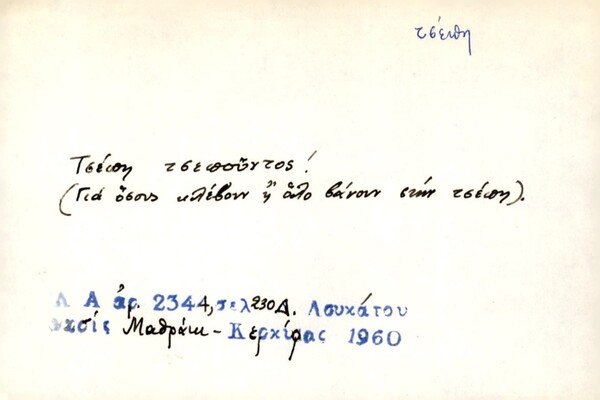 τσέπη
Τσέπη τσεποῦντος!
(Γιά ὅσους κλέβουν ἤ ἄλο βάνουν στήν τσέπη).
Λ Α ἀρ. 2344, σελ 230 Δ. Λουκάτου
Μαθράκι - Κερκύρας 1960